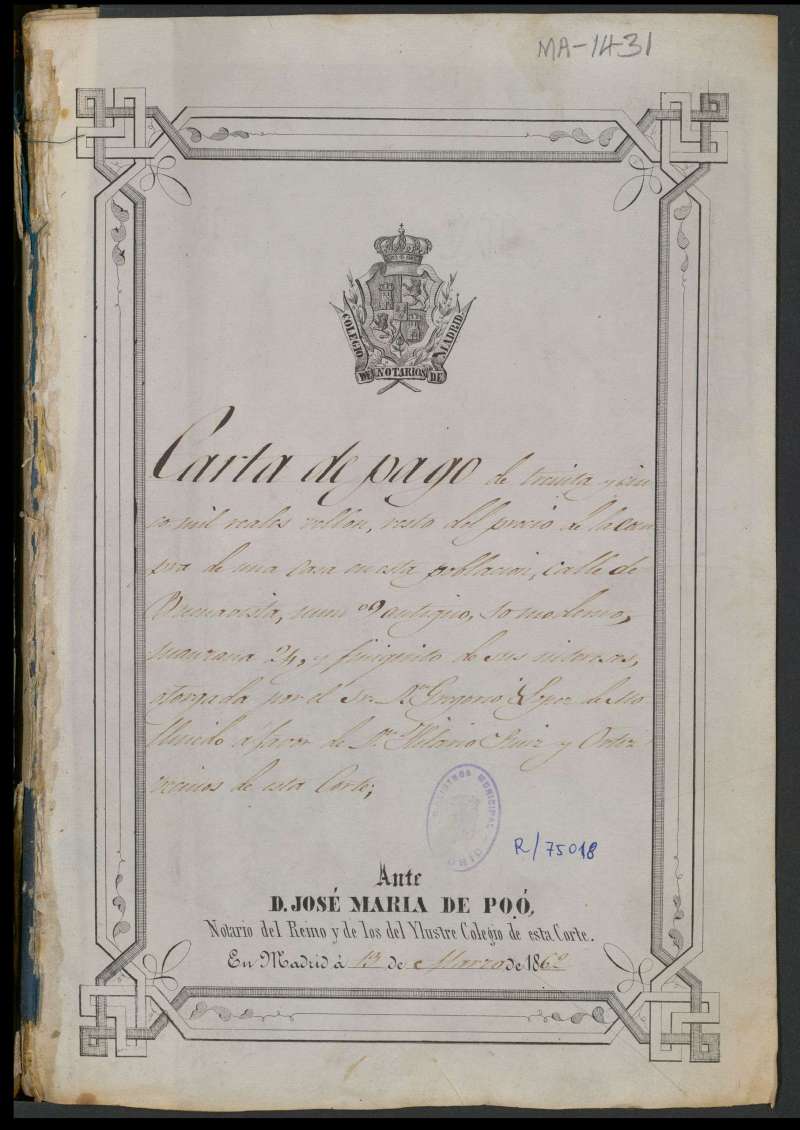 MA-1431
COLEGIO DE NOTARIOS DE MADRID
Carta de pago de treinta y cin
co mil reales vellon, resto del precio de la com
pra de una casa en esta poblacion, calle de
Buenavista, num.º 9 antiguo, 10 moderno,
manzana 24, y finiquito de sus intereses,
otorgada por el Sr. D.n Gregorio Lopez de Mo
llinedo a favor de D.n Hilario Ruiz y Ortiz
vecinos de esta Corte;
MUNICIPAL
R/75018
Ante
D. JOSÉ MARIA DE POÓ,
Notario del Reino y de los del Ylustre Colegio de esta Corte.
En Madrid á 13 de Marzo de 186